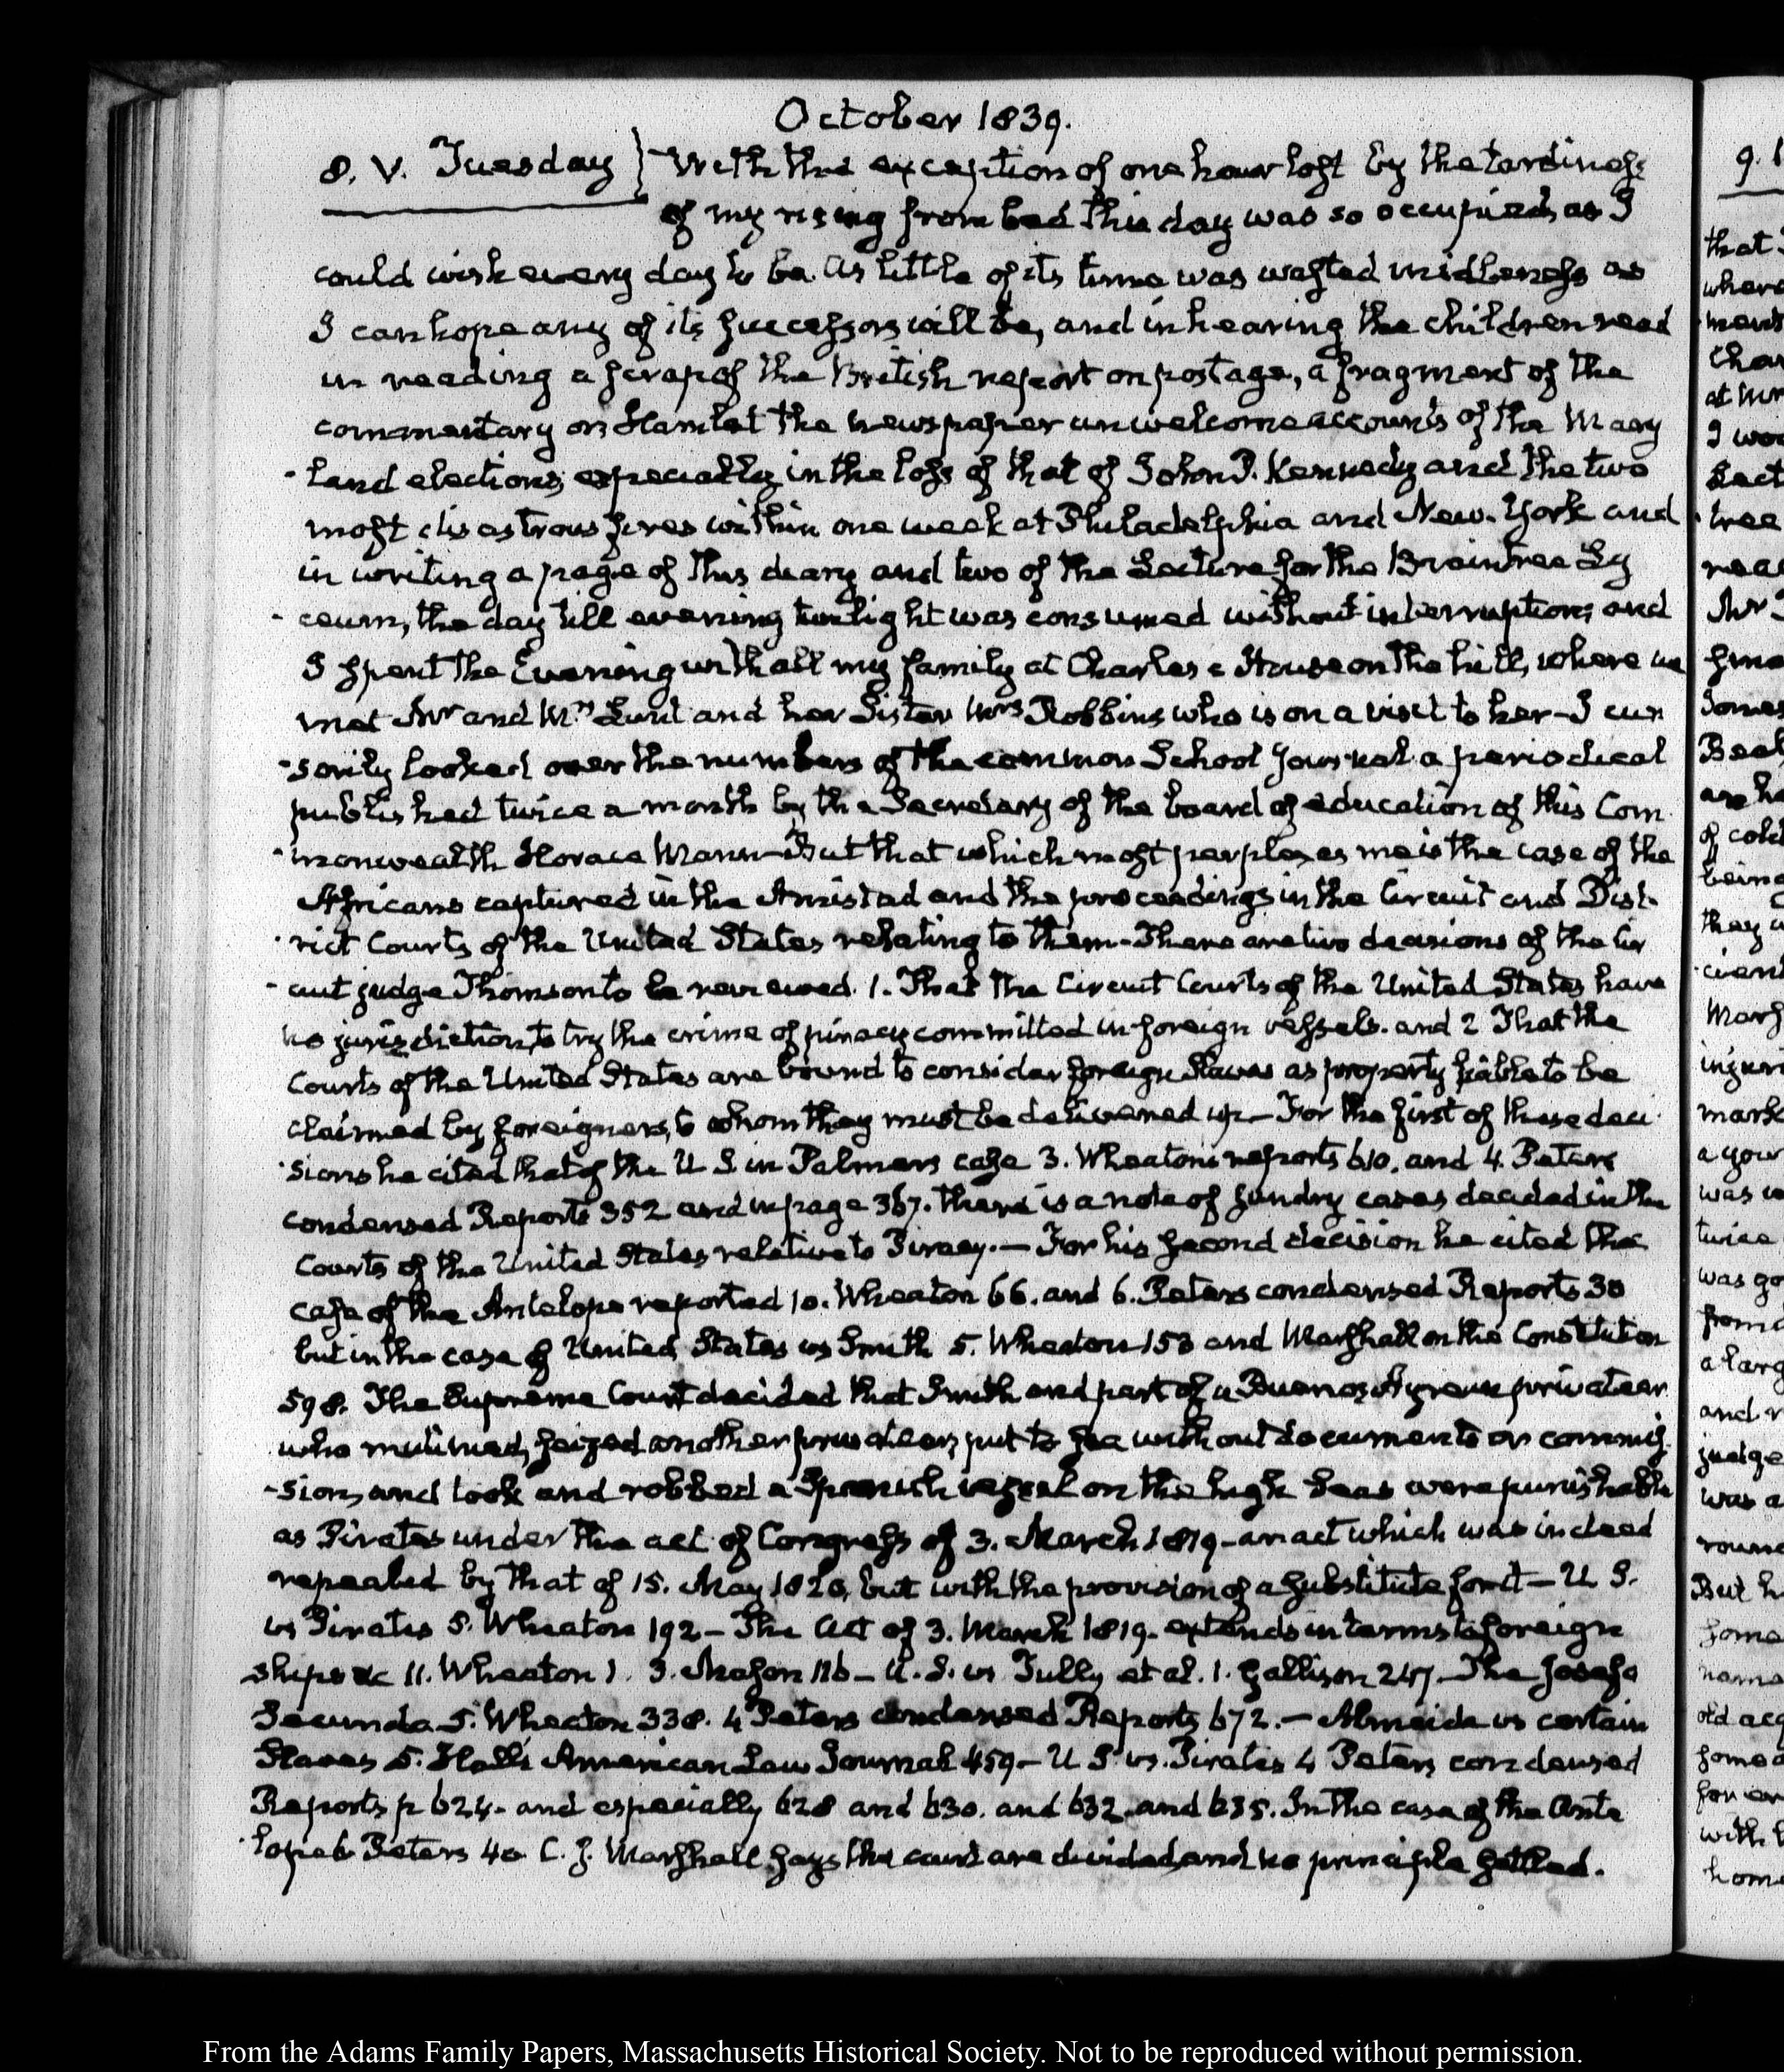 October 1839.
8. V. Tuesday } With the exception of one hour lost by the tardiness
of my rising from bed this day was so occupied, as I
could wish every day to be. As little of its time was wasted in idleness as
I can hope any of its successors will be, and in hearing the children read
in reading a scrap of the British report on postage, a fragment of the
commentary on Hamlet the newspaper unwelcome accounts of the Mary
-land elections, especially in the loss of that of John P. Kennedy and the two
most disastrous fires within one week at Philadelphia and New-York and
in writing a page of this diary and two of the Lecture for the Braintree Ly
-ceum, the day till evening twilight was consumed without interruption; and
I spent the Evening with all my family at Charles's House on the hill, where we
met Mr and Mrs Lunt and her Sister Mrs Robbins who is on a visit to her- I cur
-sorily looked over the numbers of the common School Journal a periodical
published twice a month by the Secretary of the board of education of this Com
-monwealth Horace Mann- But that which most perplexes me is the case of the
Africans captured in the Amistad and the proceedings in the Circuit and Dist-
-rict Courts of the United States relating to them- There are two decisions of the Cir
-cuit judge Thomson to be reviewed. 1. That the Circuit Courts of the United States have
no jurisdiction, to try the crime of piracy committed in foreign vessels. and 2 That the
Courts of the United States are bound to consider foreign Slaves as property liable to be
claimed by foreigners, to whom they must be delivered up- For the first of these deci
-sions he cited that of the U S. in Palmers case 3. Wheaton's reports 610. and 4. Peters
condensed Reports 352 and in page 367. there is a note of sundry cases decided in the
Courts of the United States relative to Piracy.- For his second decision he cited the
case of the Antelope reported 10. Wheaton 66. and 6. Peters condensed Reports 30
but in the case of United States vs Smith 5. Wheaton 153 and Marshall on the Constitution
598. The Supreme Court decided that Smith and part of a Buenos Ayrean privateer
who mutinied, seized another privateer, put to sea without documents or commis
-sion, and took and robbed a Spanish vessel on the high Seas were punishable
as Pirates under the act of Congress of 3. March 1819- an act which was indeed
repealed by that of 15. May 1820, but with the provision of a substitute for it- U S.
vs Pirates 5. Wheaton 192- The Act of 3. March 1819. extends in terms to foreign
ships &c 11. Wheaton 1. 3. Mason 116- U. S. vs Tully et al. 1. Gallison 247- The Josefa
Secunda 5. Wheaton 338. 4 Peters condensed Reports 672.- Almeida vs certain
Slaves 5. Hall's American Law Journal 459- U S. vs. Pirates 4 Peters condensed
Reports p 624- and especially 628 and 630. and 632 and 635. In the case of the Ante
-lope 6 Peters 40 C. J. Marshall says the court are divided and no principle settled.
From the Adams Family Papers, Massachusetts Historical Society. Not to be reproduced without permission.